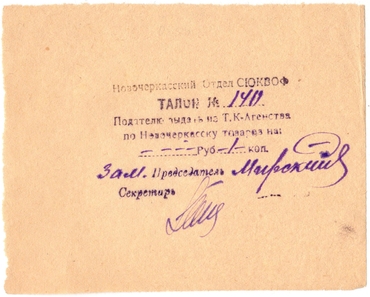 Новочеркасский Отдел СЮКВОФ
ТАЛОН № 140
Подателю выдать из Т.К-Агенства
по Новочеркасску товаров на:
— — — — Руб. 1 коп.
Зам. Председатель Мирский
Секретарь